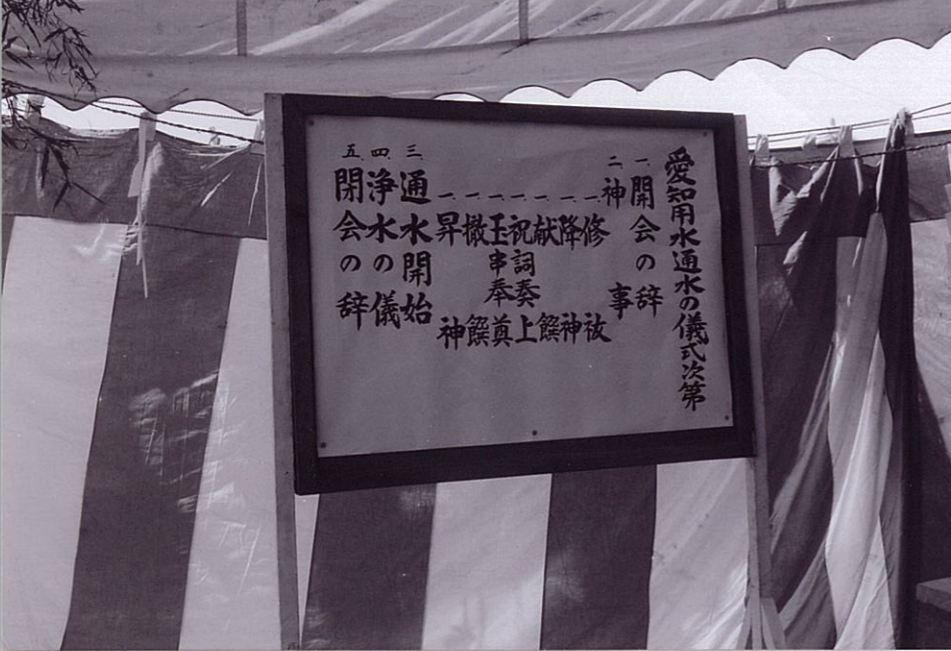 愛知用水通水の儀式次第
一 開会の辞
二 神事
一、修祓
一、降神
一、献饌
一、祝詞奏上
一、玉串奉奠
一、撤饌
一、昇神
三、通水開始
四、浄水の儀
五、閉会の辞